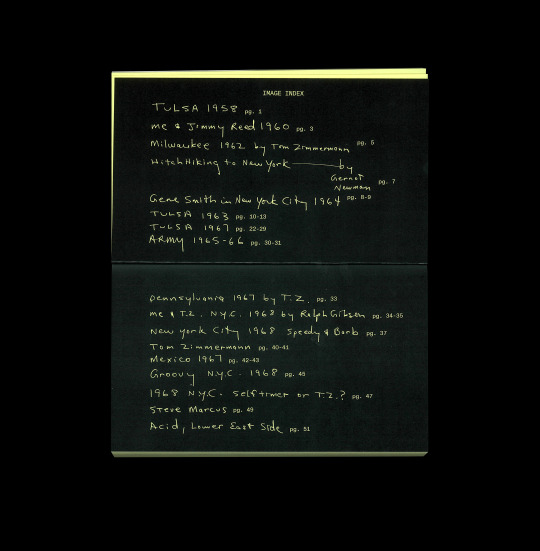 IMAGE INDEX
TULSA 1958 pg. 1
me & Jimmy Reed 1960 pg. 3
Milwaukee 1962 by Tom Zimmermann pg. 5
HitchHiking to New York — by
Gernot
Newman pg. 7
Gene Smith in New York City 1964 pg. 8-9
TULSA 1963 pg. 10-13
TULSA 1967 pg. 22-29
ARMY 1965-66 pg. 30-31
pennsylvania 1967 by T.Z. pg. 33
me & T.Z. N.Y.C. 1968 by Ralph Gibson pg. 34-35
New york City 1968 Speedy & Barb pg. 37
Tom Zimmermann pg. 40-41
Mexico 1967 pg. 42-43
Groovy N.Y.C. 1968 pg. 45
1968 N.Y.C. selftimer or T.Z.? pg. 47
Steve Marcus pg. 49
Acid, Lower East Side pg. 51